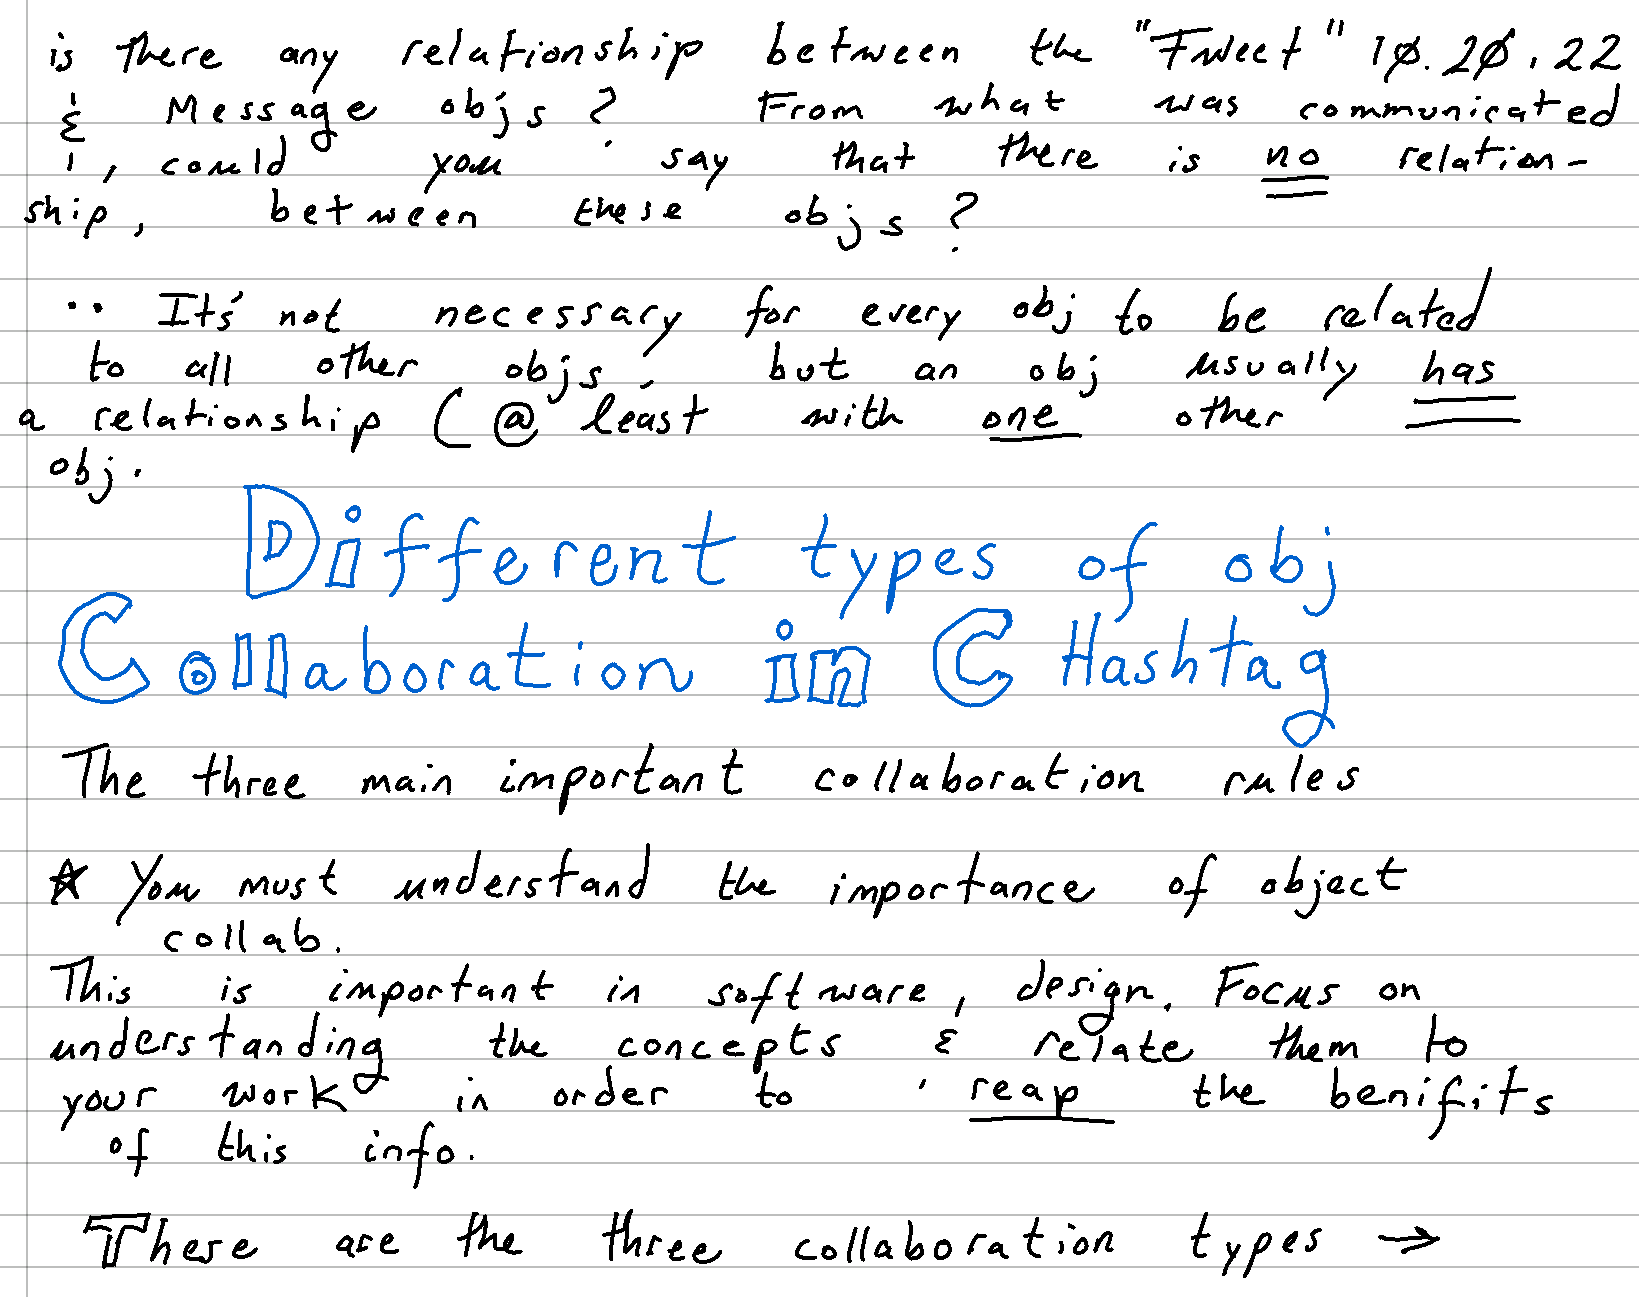 is there any relationship between the "Tweet" 10.20.22
& Message objs? From what was communicated
, could you say that there is no relation-
ship, between these objs?
.. It's not necessary for every obj to be related
to all other objs, but an obj usually has
a relationship (@ least with one other
obj.
Different types of obj
Collaboration in C Hashtag
The three main important collaboration rules
☆ You must understand the importance of object
collab.
This is important in software, design. Focus on
understanding the concepts & relate them to
your work in order to reap the benifits
of this info.
These are the three collaboration types →